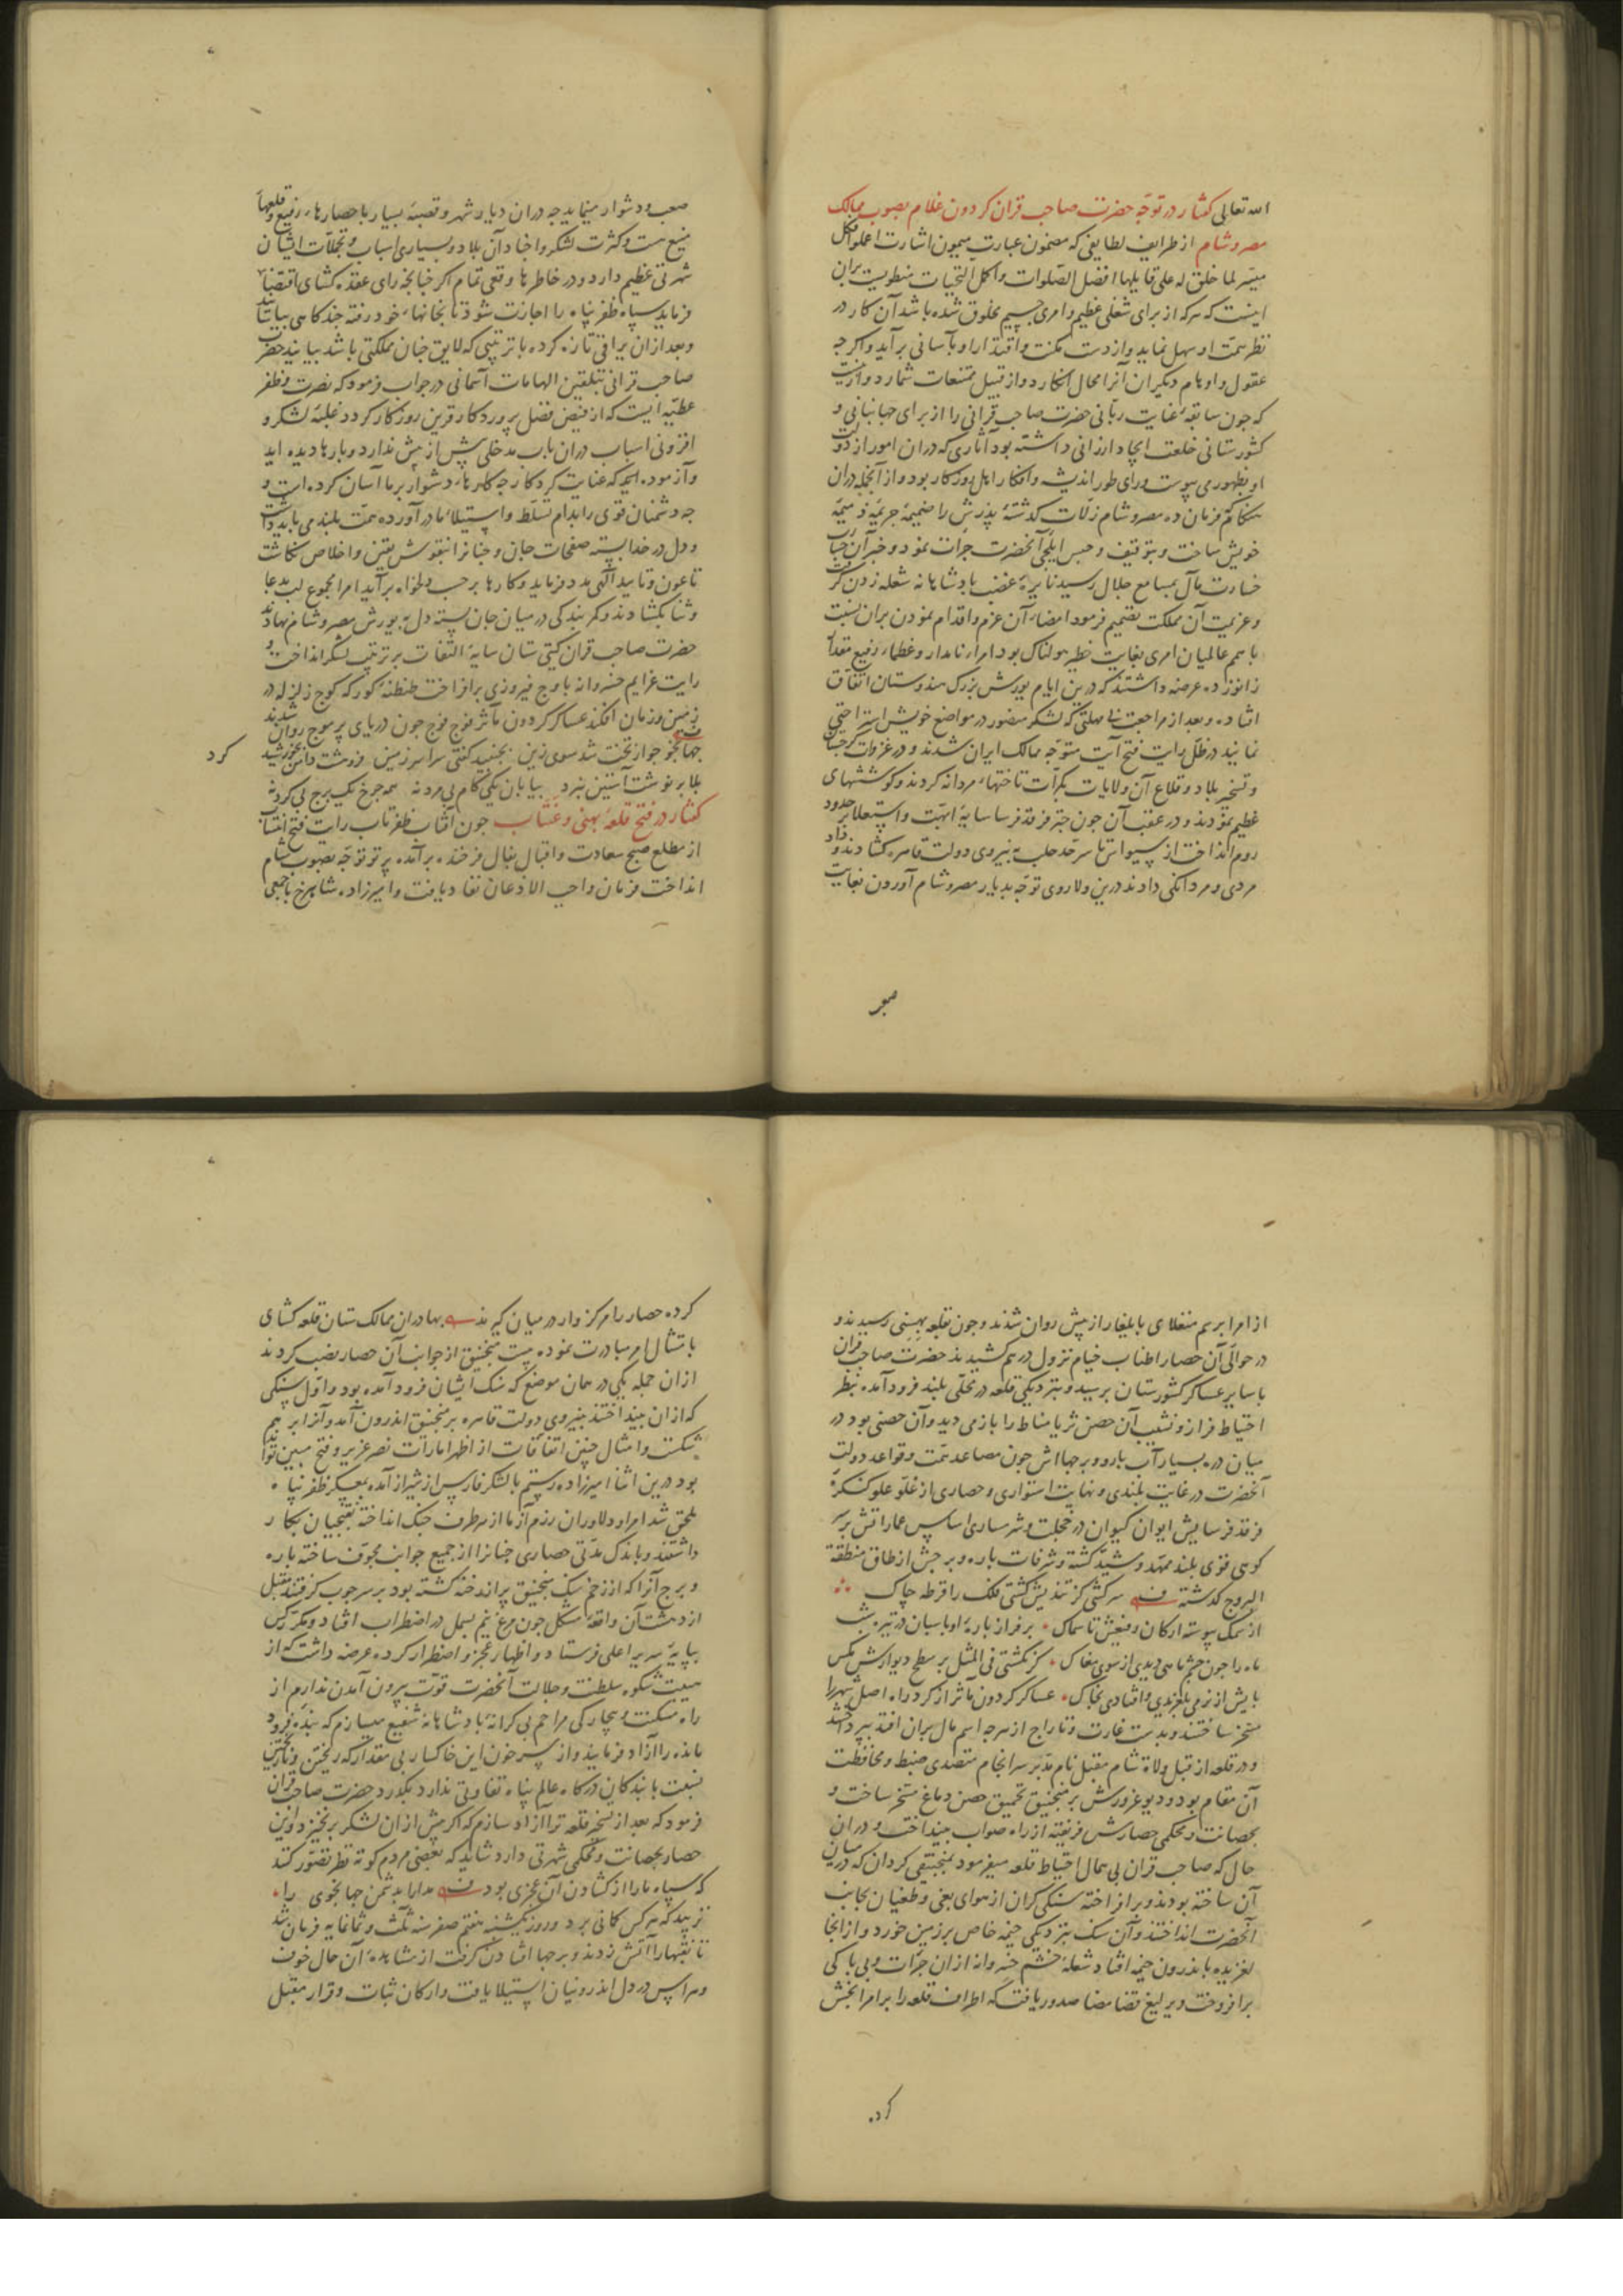 الله تعالی کفتار در توجّه حضرت صاحب قران کردون غلام بصوب ممالک
مصر و شام از طرایف لطایفی که مضمون عبارت میمون اشارت اعملوا فکل
میسّر لما خلق له علی قایلها افضل الصّلوات و اکمل التحیّات منطویست بران
اینست که هرکه از برای شغلی عظیم و امری جسیم مخلوق شده باشد آن کار در
نظر همّت او سهل نماید و از دست مکنت و اقتدار او بآسانی برآید و اکرچه
عقول و اوهام دیکران آنرا محال انکارد و از قبیل ممتنعات شمارد و ازینست
که چون سابقهٔ عنایت ربّانی حضرت صاحب قرانی را از برای جهانبانی و
کشورستانی خلعت ایجاد ارزانی داشته بود آثاری که دران امور از دولت
او بظهور می پیوست ورای طور اندیشه و افکار اهل روزکار بود و از آنجمله دران
هنکام که فرمان ده مصر و شام زلّات کذشتهٔ پدرش را ضمیمهٔ جریمهٔ ذمیمهٔ
خویش ساخت و بتوقیف و حبس ایلچی آنحضرت جرات نمود و خبر آن
خسارت مآل بمسامع جلال رسید نایرهٔ غضب پادشاهانه شعله زدن کرفت
و عزیمت آن مملکت تصمیم فرمود امضاء آن عزم و اقدام نمودن بران نسبت
با همم عالمیان امری بغایت خطیر هولناک بود امراء نامدار و عظماء رفیع مقدار
زانو زده عرضه داشتند که درین ایام یورش بزرک هندوستان اتفاق
افتاده و بعد از مراجعت بی مهلتی که لشکر منصور در مواضع خویش استراحتی
نمایند در ظلّ رایت فتح آیت متوجّه ممالک ایران شدند و در غزوات کرجستان
و تسخیر بلاد و قلاع آن ولایات بکرّات تاختهاء مردانه کردند و کوششهای
عظیم نمودند و در عقب آن چون چتر فرقد فرسا سایهٔ ابهّت و استعلا بر حدود
روم انداخت از سیواس تا سرحد حلب به نیروی دولت قاهره کشادند و داد
مردی و مردانکی دادند درین ولا روی توجّه بدیار مصر و شام آوردن بغایت
صعب
صعب و دشوار مینماید چه دران دیار شهر و قصبهٔ بسیار با حصارهاء رفیع و قلعهاء
منیع هست و کثرت لشکر و اجناد آن بلاد و بسیاری اسباب و تجمّلات ایشان
شهرتی عظیم دارد و در خاطرها وقعی تمام اکر چنانچه رای عقده کشای اقتضا
فرماید سپاه ظفر پناه را اجازت شود تا بخانهاء خود رفته چندکاهی بیاسایند
و بعد ازان یراقی تازه کرده با ترتیبی که لایق چنان مملکتی باشد بیایند حضرت
صاحب قرانی بتلقین الهامات آسمانی در جواب فرمود که نصرت و ظفر
عطیّه ایست که از فیض فضل پروردکار قرین روزکار کردد غلبهٔ لشکر و
افزونی اسباب دران باب مدخلی پیش ازین ندارد و بارها دیده اید
و آزموده ایم که عنایت کردکار چه کارهاء دشوار بر ما آسان کرده است و
چه دشمنان قوی را بدام تسلّط و استیلاء ما در آورده همّت بلند می باید داشت
و دل در خدا بسته صفحات جان و جنان را بنقوش یقین و اخلاص نکاشت
تا عون و تایید آلهی مدد فرماید و کارها بر حسب دلخواه برآید امرا مجموع لب بدعا
و ثنا بکشادند و کمر بندکی در میان جان بسته دل بر یورش مصر و شام نهادند
حضرت صاحب قران کیتی ستان سایهٔ التفات بر ترتیب لشکر انداخت و
رایت عزایم خسروانه باوج فیروزی برافراخت طنطنهٔ کورکه کوچ زلزله در
زمین و زمان افکند عساکر کردون مآثر فوج فوج چون دریای پر موج روان شدند
جهانجو چو از تخت شد سوی زین بجنبید کفتی سراسر زمین
بیابان یکی کام بی مرد نه همه چرخ یک برج بی کرد نه
کفتار در فتح قلعهٔ بهنی و عنتاب چون آفتاب ظفرتاب رایت فتح انتساب
از مطلع صبح سعادت و اقبال بفال فرخنده برآمده پرتو توجّه بصوب شام
انداخت فرمان واجب الاذعان نفاذ یافت و امیرزاده شاهرخ با جمعی
کرد
از امرا برسم منقلای با یلغار از پیش روان شدند و چون بقلعه بهسنی رسیدند و
در حوالی آن حصار اطناب خیام نزول درهم کشیدند حضرت صاحب قران
با سایر عساکر کشورستان برسید و بنزدیکی قلعه در محلّی بلند فرود آمده بنظر
احتیاط فراز و نشیب آن حصن ثریا مناط را باز می دید و آن حصنی بود در
میان دره بسیار آب بارو و برجهااش چون مصاعد همّت و قواعد دولت
آنحضرت در غایت بلندی و نهایت استواری و حصاری از غلوّ علو کنکرهٔ
فرقد فرسایش ایوان کیوان در خجلت و شرمساری اساس عماراتش بر سر
کوهی قوی بلند ممهّد و مشیّد کشته و شرفات باره و برجش از طاق منطقة
البروج کذشته سرکشی کز تندیش کشتی فلک را قرطه چاک
از سمک پیوسته ارکان رفیعش تا سماک برفراز بارهٔ او پاسبان در تیره شب
ماه را چون چشم ماهی دیدی از سوی مغاک کر بکشتی فی المثل بر سطح دیوارش مکس
پایش از نرمی بلغزیدی و افتادی بخاک عساکر کردون مآثر از کرد راه اصل شهر را
مسخّر ساختند و بدست غارت و تاراج از هرچه اسم مال بران افتد بپرداختند
و در قلعه از قبل ولاة شام مقبل نام مدبّر سرانجام متصدی ضبط و محافظت
آن مقام بود و دیو غرورش بر منجنیق تحمیق حصن دماغ مسخّر ساخت و
بحصانت و محکمی حصارش فریفته از راه صواب بینداخت و دران
حال که صاحب قران بی همال احتیاط قلعه میفرمود بمنجنیقی کردان که در میان
آن ساخته بودند و برافراخته سنکی کران از هوای بغی و طغیان بجانب
آنحضرت انداختند و آن سنک بنزدیکی خیمهٔ خاص بر زمین خورد و از آنجا
لغزیده باندرون خیمه افتاد شعلهٔ خشم خسروانه ازان جرأت و بی باکی
برافروخت و یرلیغ قضا مضا صدور یافت که اطراف قلعه را بر امرا بخش
کرده
کرده حصار را مرکز وار در میان کیرند بهادران ممالک ستان قلعه کشای
بامتثال امر مبادرت نموده بیست منجنیق از جوانب آن حصار نصب کردند
ازان جمله یکی در همان موضع که سنک ایشان فرود آمده بود و اوّل سنکی
که ازان بینداختند بنیروی دولت قاهره بر منجنیق اندرون آمد و آنرا برهم
شکست و امثال چنین اتفاقات از اظهر امارات نصر عزیز و فتح مبین تواند
بود درین اثنا امیرزاده رستم با لشکر فارس از شیراز آمده بمعسکر ظفر پناه
ملحق شد امراء و دلاوران رزم آزما از هر طرف جنک انداخته نقبچیان بکار
داشتند و باندک مدّتی حصاری چنان را از جمیع جوانب مجوّف ساخته باره
و برج آنرا که از زخم سنک منجنیق پراندخته کشته بود بر سر چوب کرفتند مقبل
از دهشت آن واقعهٔ مشکل چون مرغ نیم بسمل در اضطراب افتاد و مکرّر کس
بپایهٔ سریر اعلی فرستاد و اظهار عجز و اضطرار کرده عرضه داشت که از
هیبت شکوه سلطنت و جلالت آنحضرت قوّت بیرون آمدن ندارم از
راه مسکنت و بیچارکی مراحم بی کرانهٔ پادشاهانه شفیع میسازم که بندهٔ فرو
مانده را آزاد فرمایند و از سر خون این خاکسار بی مقدار که ریختن و نکشتن
نسبت با بندکان درکاه عالم پناه تفاوتی ندارد بکذرد حضرت صاحب قران
فرمود که بعد از تسخیر قلعه ترا آزاد سازم که اکر پیش ازان لشکر برخیزد و این
حصار بحصانت و محکمی شهرتی دارد شاید که بعضی مردم کوته نظر تصوّر کنند
که سپاه ما را از کشادن آن عجزی بود مدارا بدشمن جهانجوی را
نزیبد که هر کس کمانی برد و روز یکشنبه هفتم صفر سنه ثلث و ثمانمایه فرمان شد
تا نقبهارا آتش زدند و برجها افتادن کرفت از مشاهدهٔ آن حال خوف
و هراس در دل اندرونیان استیلا یافت و ارکان ثبات و قرار مقبل